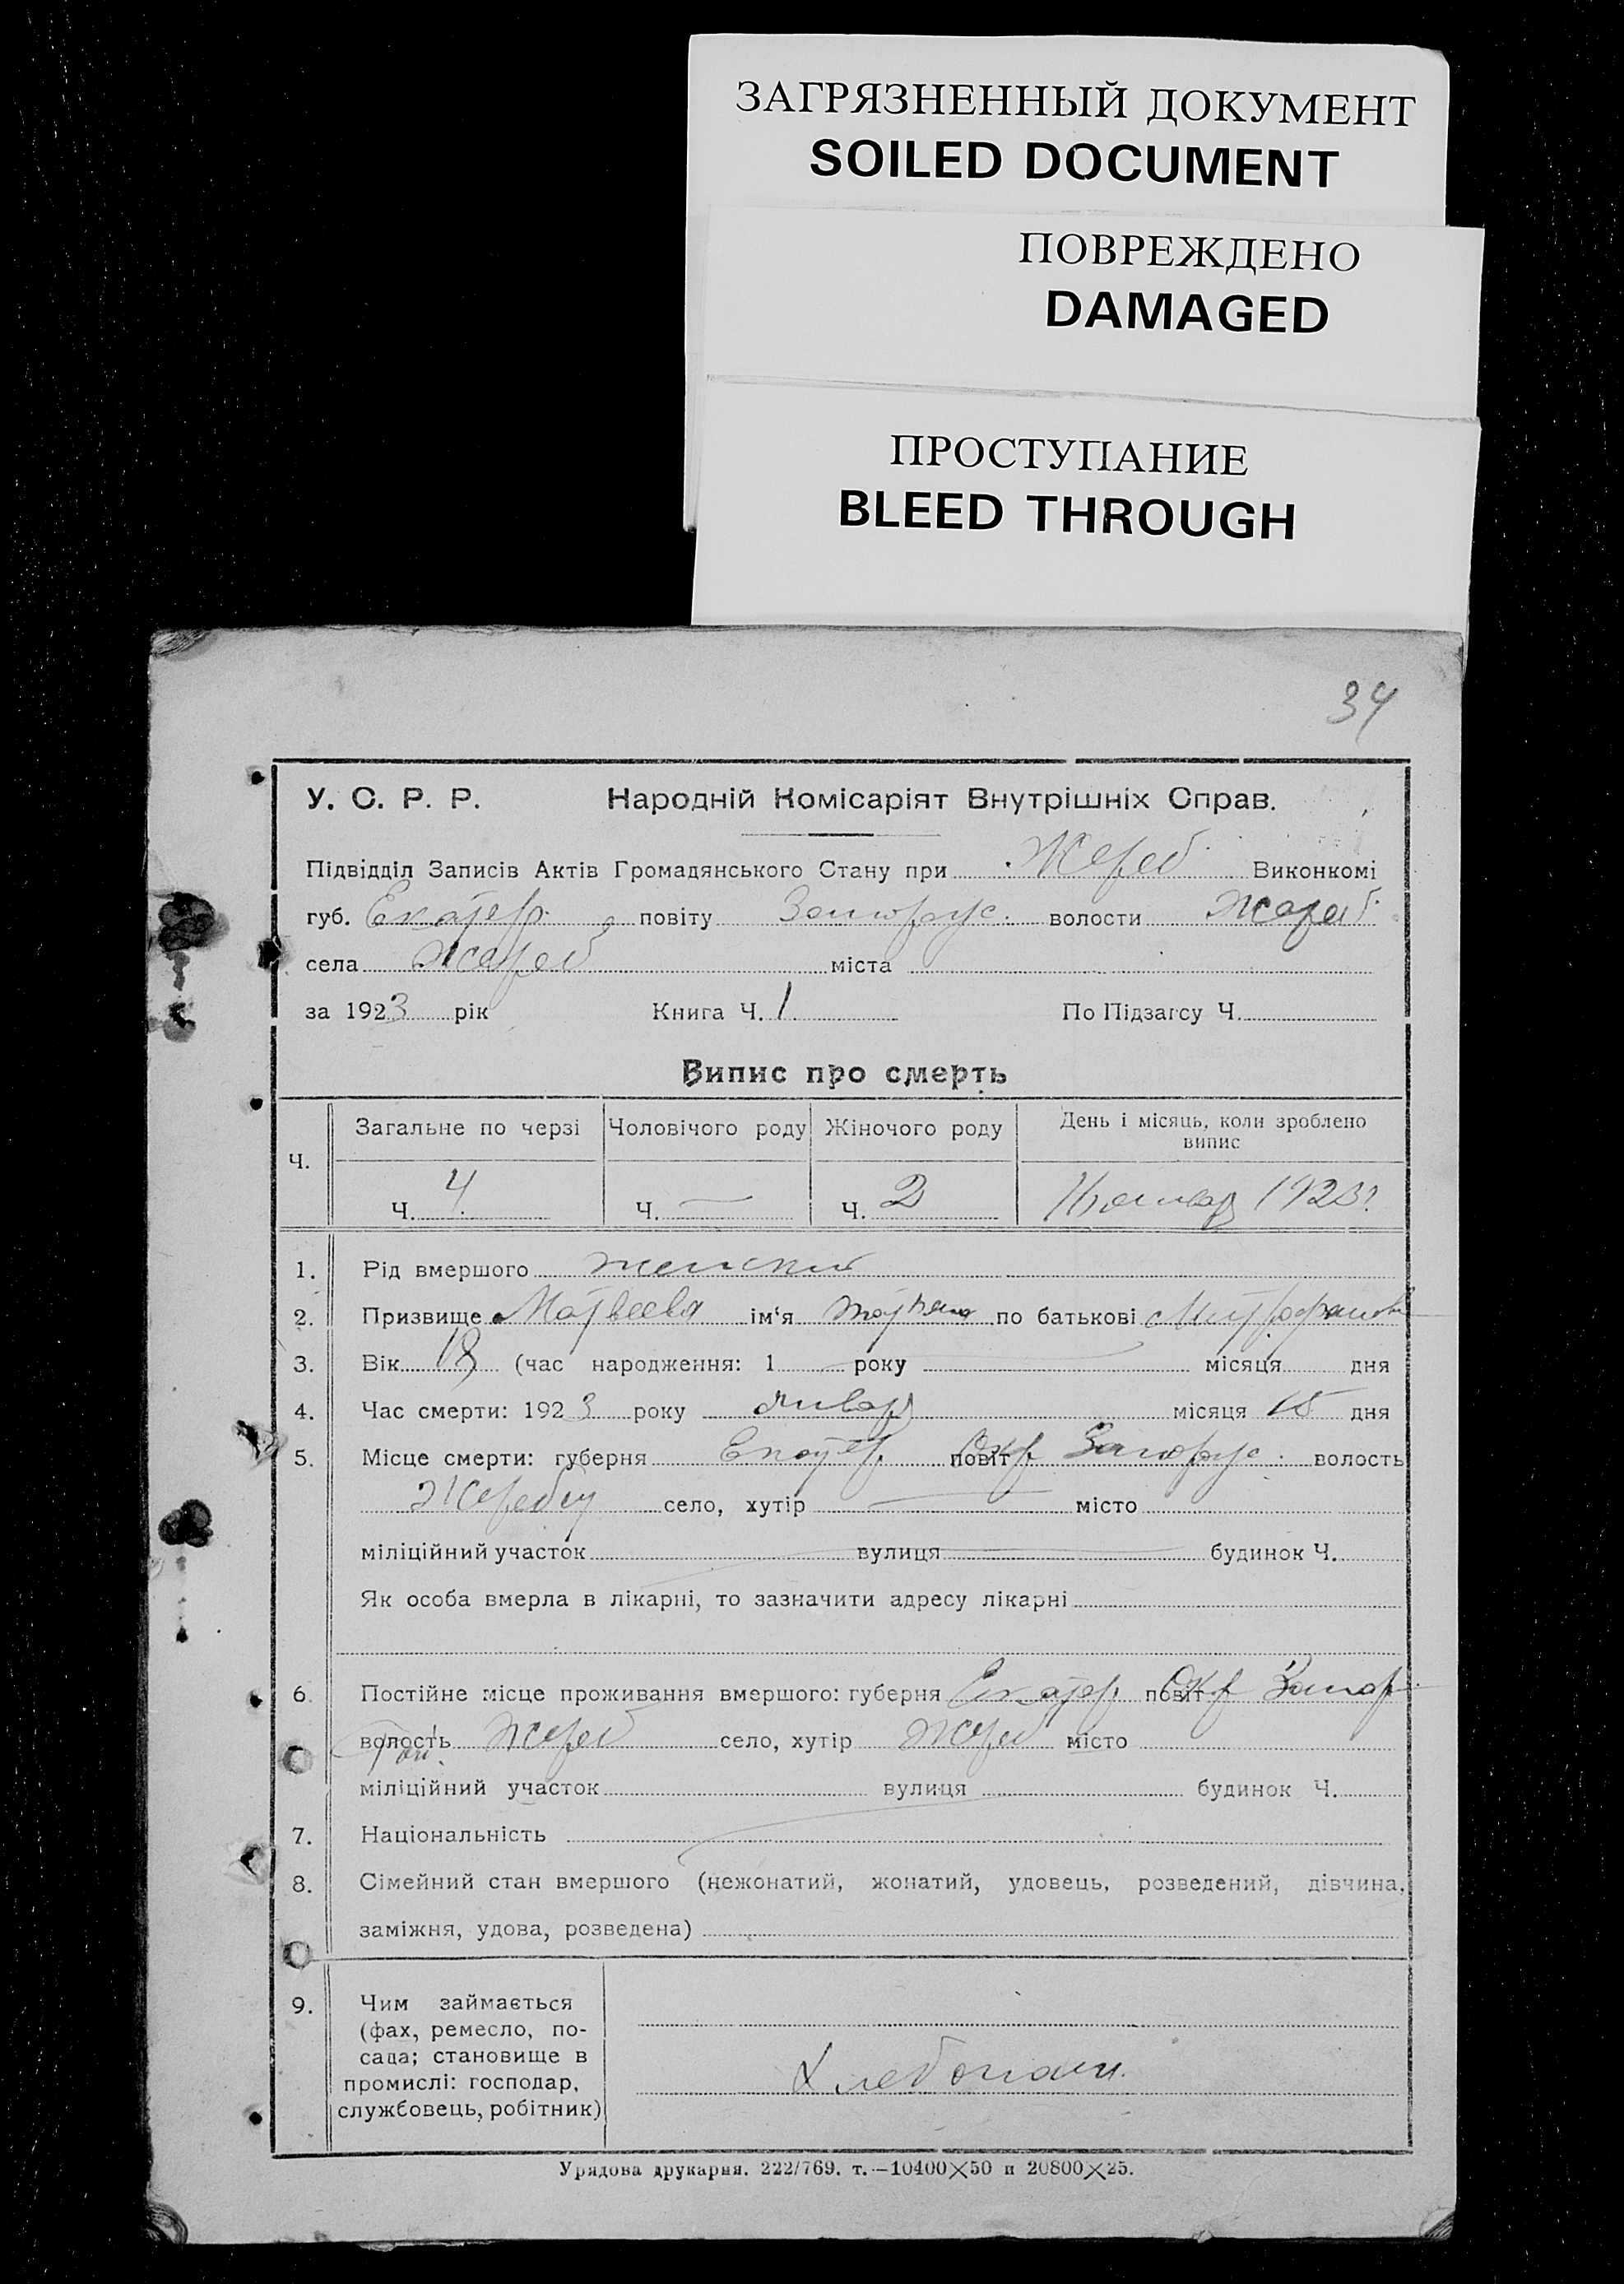 ЗАГРЯЗНЕННЫЙ ДОКУМЕНТ
SOILED DOCUMENT
ПОВРЕЖДЕНО
DAMAGED
ПРОСТУПАНИЕ
BLEED THROUGH
34
У. С. Р. Р. Народній Комісаріят Внутрішніх Справ.
Підвідділ Записів Актів Громадянського Стану при Жереб. Виконкомі
губ. Екатер. повіту Запорож. волости Жереб.
села Жереб міста
за 1923 рік Книга Ч. 1 По Підзагсу Ч.
Випис про смерть
Ч. Загальне по черзі Чоловічого роду Жіночого роду День і місяць, коли зроблено випис
Ч. 4 Ч. — Ч. 2 1923
1. Рід вмершого женский
2. Призвище Матвеева ім‘я по батькові Митрофанов
3. Вік 18 (час народження: 1 року місяця дня
4. Час смерти: 1923 року январ місяця 15 дня
5. Місце смерти: губерня Екатер. повіт Окр Запорож. волость
село, хутір — місто
міліційний участок вулиця будинок Ч.
Як особа вмерла в лікарні, то зазначити адресу лікарні
6. Постійне місце проживання вмершого: губерня Екатер повіт Окр Запор
волость Жереб село, хутір Жереб місто
міліційний участок вулиця будинок Ч.
7. Національність
8. Сімейний стан вмершого (нежонатий, жонатий, удовець, розведений, дівчина,
заміжня, удова, розведена)
9. Чим займається
(фах, ремесло, по-
сада; становище в
промислі: господар,
службовець, робітник)
Хлебопаш.
Урядова друкарня. 222/769. т.—10400×50 п 20800×25.